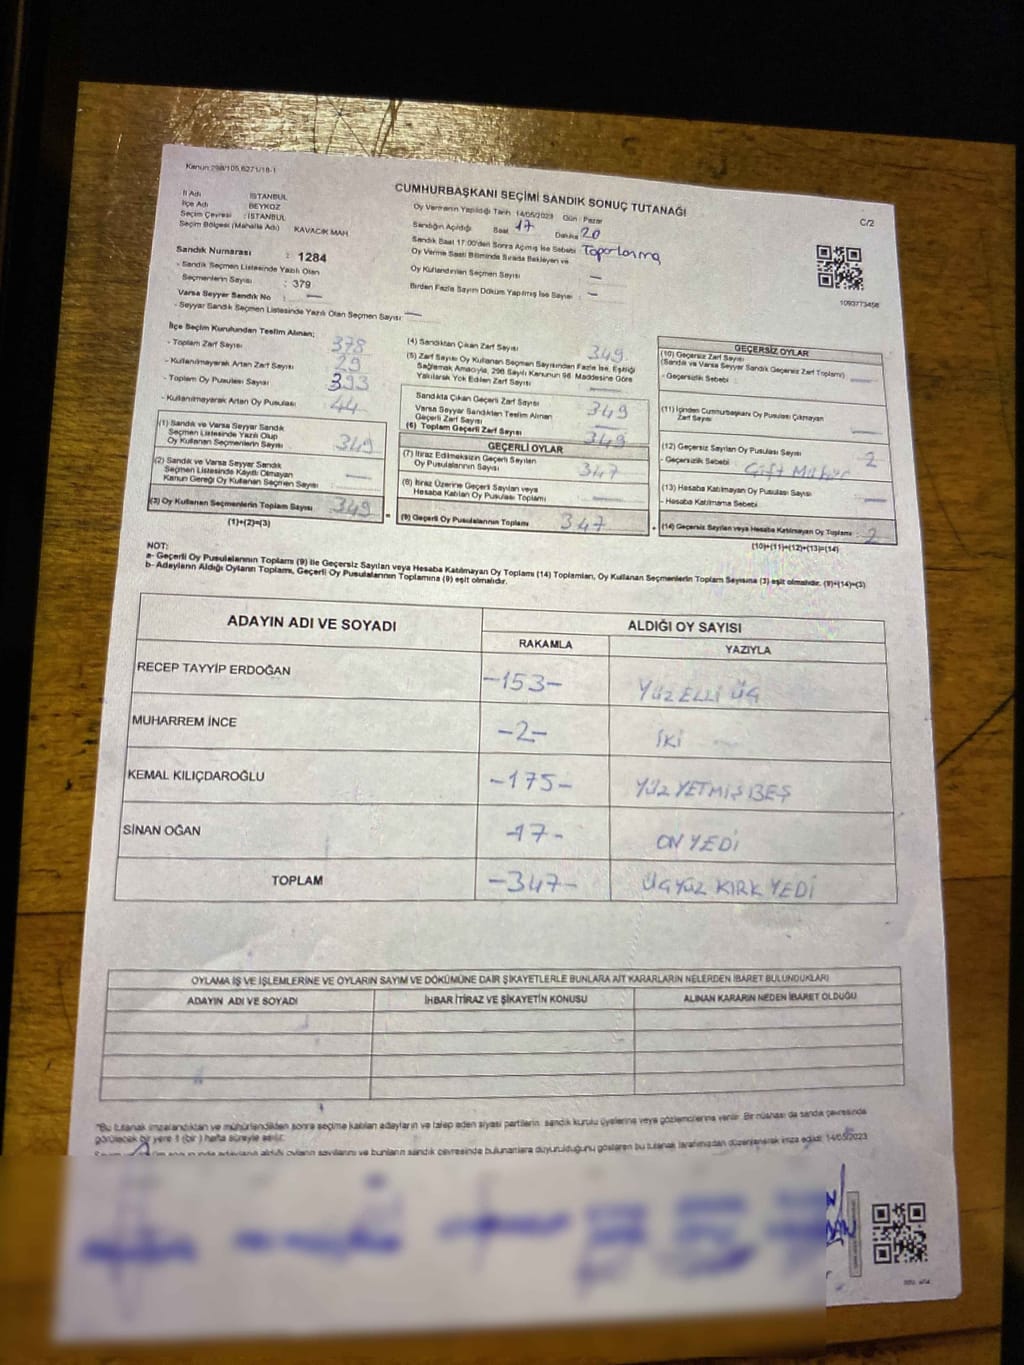 Kanun:298/105,6271/18-1
CUMHURBAŞKANI SEÇİMİ SANDIK SONUÇ TUTANAĞI
C/2
İl Adı : İSTANBUL
İlçe Adı : BEYKOZ
Seçim Çevresi : İSTANBUL
Seçim Bölgesi (Mahalle Adı) : KAVACIK MAH.
Oy Vermenin Yapıldığı Tarih : 14/05/2023 Gün : Pazar
Sandığın Açıldığı Saat 17 Dakika 20
Sandık Saat 17:00'den Sonra Açılmış İse Sebebi : Toparlanma
Oy Verme Saati Bitiminde Sırada Bekleyen ve
Oy Kullandırılan Seçmen Sayısı : —
Birden Fazla Sayım Döküm Yapılmış İse Sayısı : —
Sandık Numarası : 1284
- Sandık Seçmen Listesinde Yazılı Olan
Seçmenlerin Sayısı : 379
Varsa Seyyar Sandık No : —
- Seyyar Sandık Seçmen Listesinde Yazılı Olan Seçmen Sayısı: —
1093773456
İlçe Seçim Kurulundan Teslim Alınan;
- Toplam Zarf Sayısı 378
- Kullanılmayarak Artan Zarf Sayısı 29
- Toplam Oy Pusulası Sayısı 393
- Kullanılmayarak Artan Oy Pusulası 44
(1) Sandık ve Varsa Seyyar Sandık
Seçmen Listesinde Yazılı Olup
Oy Kullanan Seçmenlerin Sayısı 349
(2) Sandık ve Varsa Seyyar Sandık
Seçmen Listesinde Kayıtlı Olmayan
Kanun Gereği Oy Kullanan Seçmen Sayısı —
(3) Oy Kullanan Seçmenlerin Toplam Sayısı 349
(1)+(2)=(3)
(4) Sandıktan Çıkan Zarf Sayısı 349
(5) Zarf Sayısı Oy Kullanan Seçmen Sayısından Fazla İse, Eşitliği
Sağlamak Amacıyla, 298 Sayılı Kanunun 98. Maddesine Göre
Yakılarak Yok Edilen Zarf Sayısı —
Sandıkta Çıkan Geçerli Zarf Sayısı 349
Varsa Seyyar Sandıktan Teslim Alınan
Geçerli Zarf Sayısı —
(6) Toplam Geçerli Zarf Sayısı 349
GEÇERLİ OYLAR
(7) İtiraz Edilmeksizin Geçerli Sayılan
Oy Pusulalarının Sayısı 347
(8) İtiraz Üzerine Geçerli Sayılan veya
Hesaba Katılan Oy Pusulası Toplamı —
(9) Geçerli Oy Pusulalarının Toplamı 347
GEÇERSİZ OYLAR
(10) Geçersiz Zarf Sayısı
(Sandık ve Varsa Seyyar Sandık Geçersiz Zarf Toplamı)
- Geçersizlik Sebebi : —
(11) İçinden Cumhurbaşkanı Oy Pusulası Çıkmayan
Zarf Sayısı —
(12) Geçersiz Sayılan Oy Pusulası Sayısı 2
- Geçersizlik Sebebi : Çift Mühür
(13) Hesaba Katılmayan Oy Pusulası Sayısı —
- Hesaba Katılmama Sebebi
(14) Geçersiz Sayılan veya Hesaba Katılmayan Oy Toplamı : 2
(10)+(11)+(12)+(13)=(14)
NOT:
a- Geçerli Oy Pusulalarının Toplamı (9) ile Geçersiz Sayılan veya Hesaba Katılmayan Oy Toplamı (14) Toplamları, Oy Kullanan Seçmenlerin Toplam Sayısına (3) eşit olmalıdır. (9)+(14)=(3)
b- Adayların Aldığı Oyların Toplamı, Geçerli Oy Pusulalarının Toplamına (9) eşit olmalıdır.
ADAYIN ADI VE SOYADI
ALDIĞI OY SAYISI
RAKAMLA YAZIYLA
RECEP TAYYİP ERDOĞAN -153- YÜZ ELLİ ÜÇ
MUHARREM İNCE -2- İKİ
KEMAL KILIÇDAROĞLU -175- YÜZ YETMİŞ BEŞ
SİNAN OĞAN -17- ON YEDİ
TOPLAM -347- ÜÇYÜZ KIRK YEDİ
OYLAMA İŞ VE İŞLEMLERİNE VE OYLARIN SAYIM VE DÖKÜMÜNE DAİR ŞİKAYETLERLE BUNLARA AİT KARARLARIN NELERDEN İBARET BULUNDUKLARI
ADAYIN ADI VE SOYADI İHBAR İTİRAZ VE ŞİKAYETİN KONUSU ALINAN KARARIN NEDEN İBARET OLDUĞU
"Bu tutanak imzalandıktan ve mühürlendikten sonra seçime katılan adayların ve talep eden siyasi partilerin, sandık kurulu üyelerine veya gözlemcilerine verilir. Bir nüshası da sandık çevresinde
görülecek bir yere 1 (bir) hafta süreyle asılır.
adayların aldığı oyların sayılarını ve bunların sandık çevresinde bulunanlara duyurulduğunu gösteren bu tutanak tarafımızdan düzenlenerek imza edildi. 14/05/2023